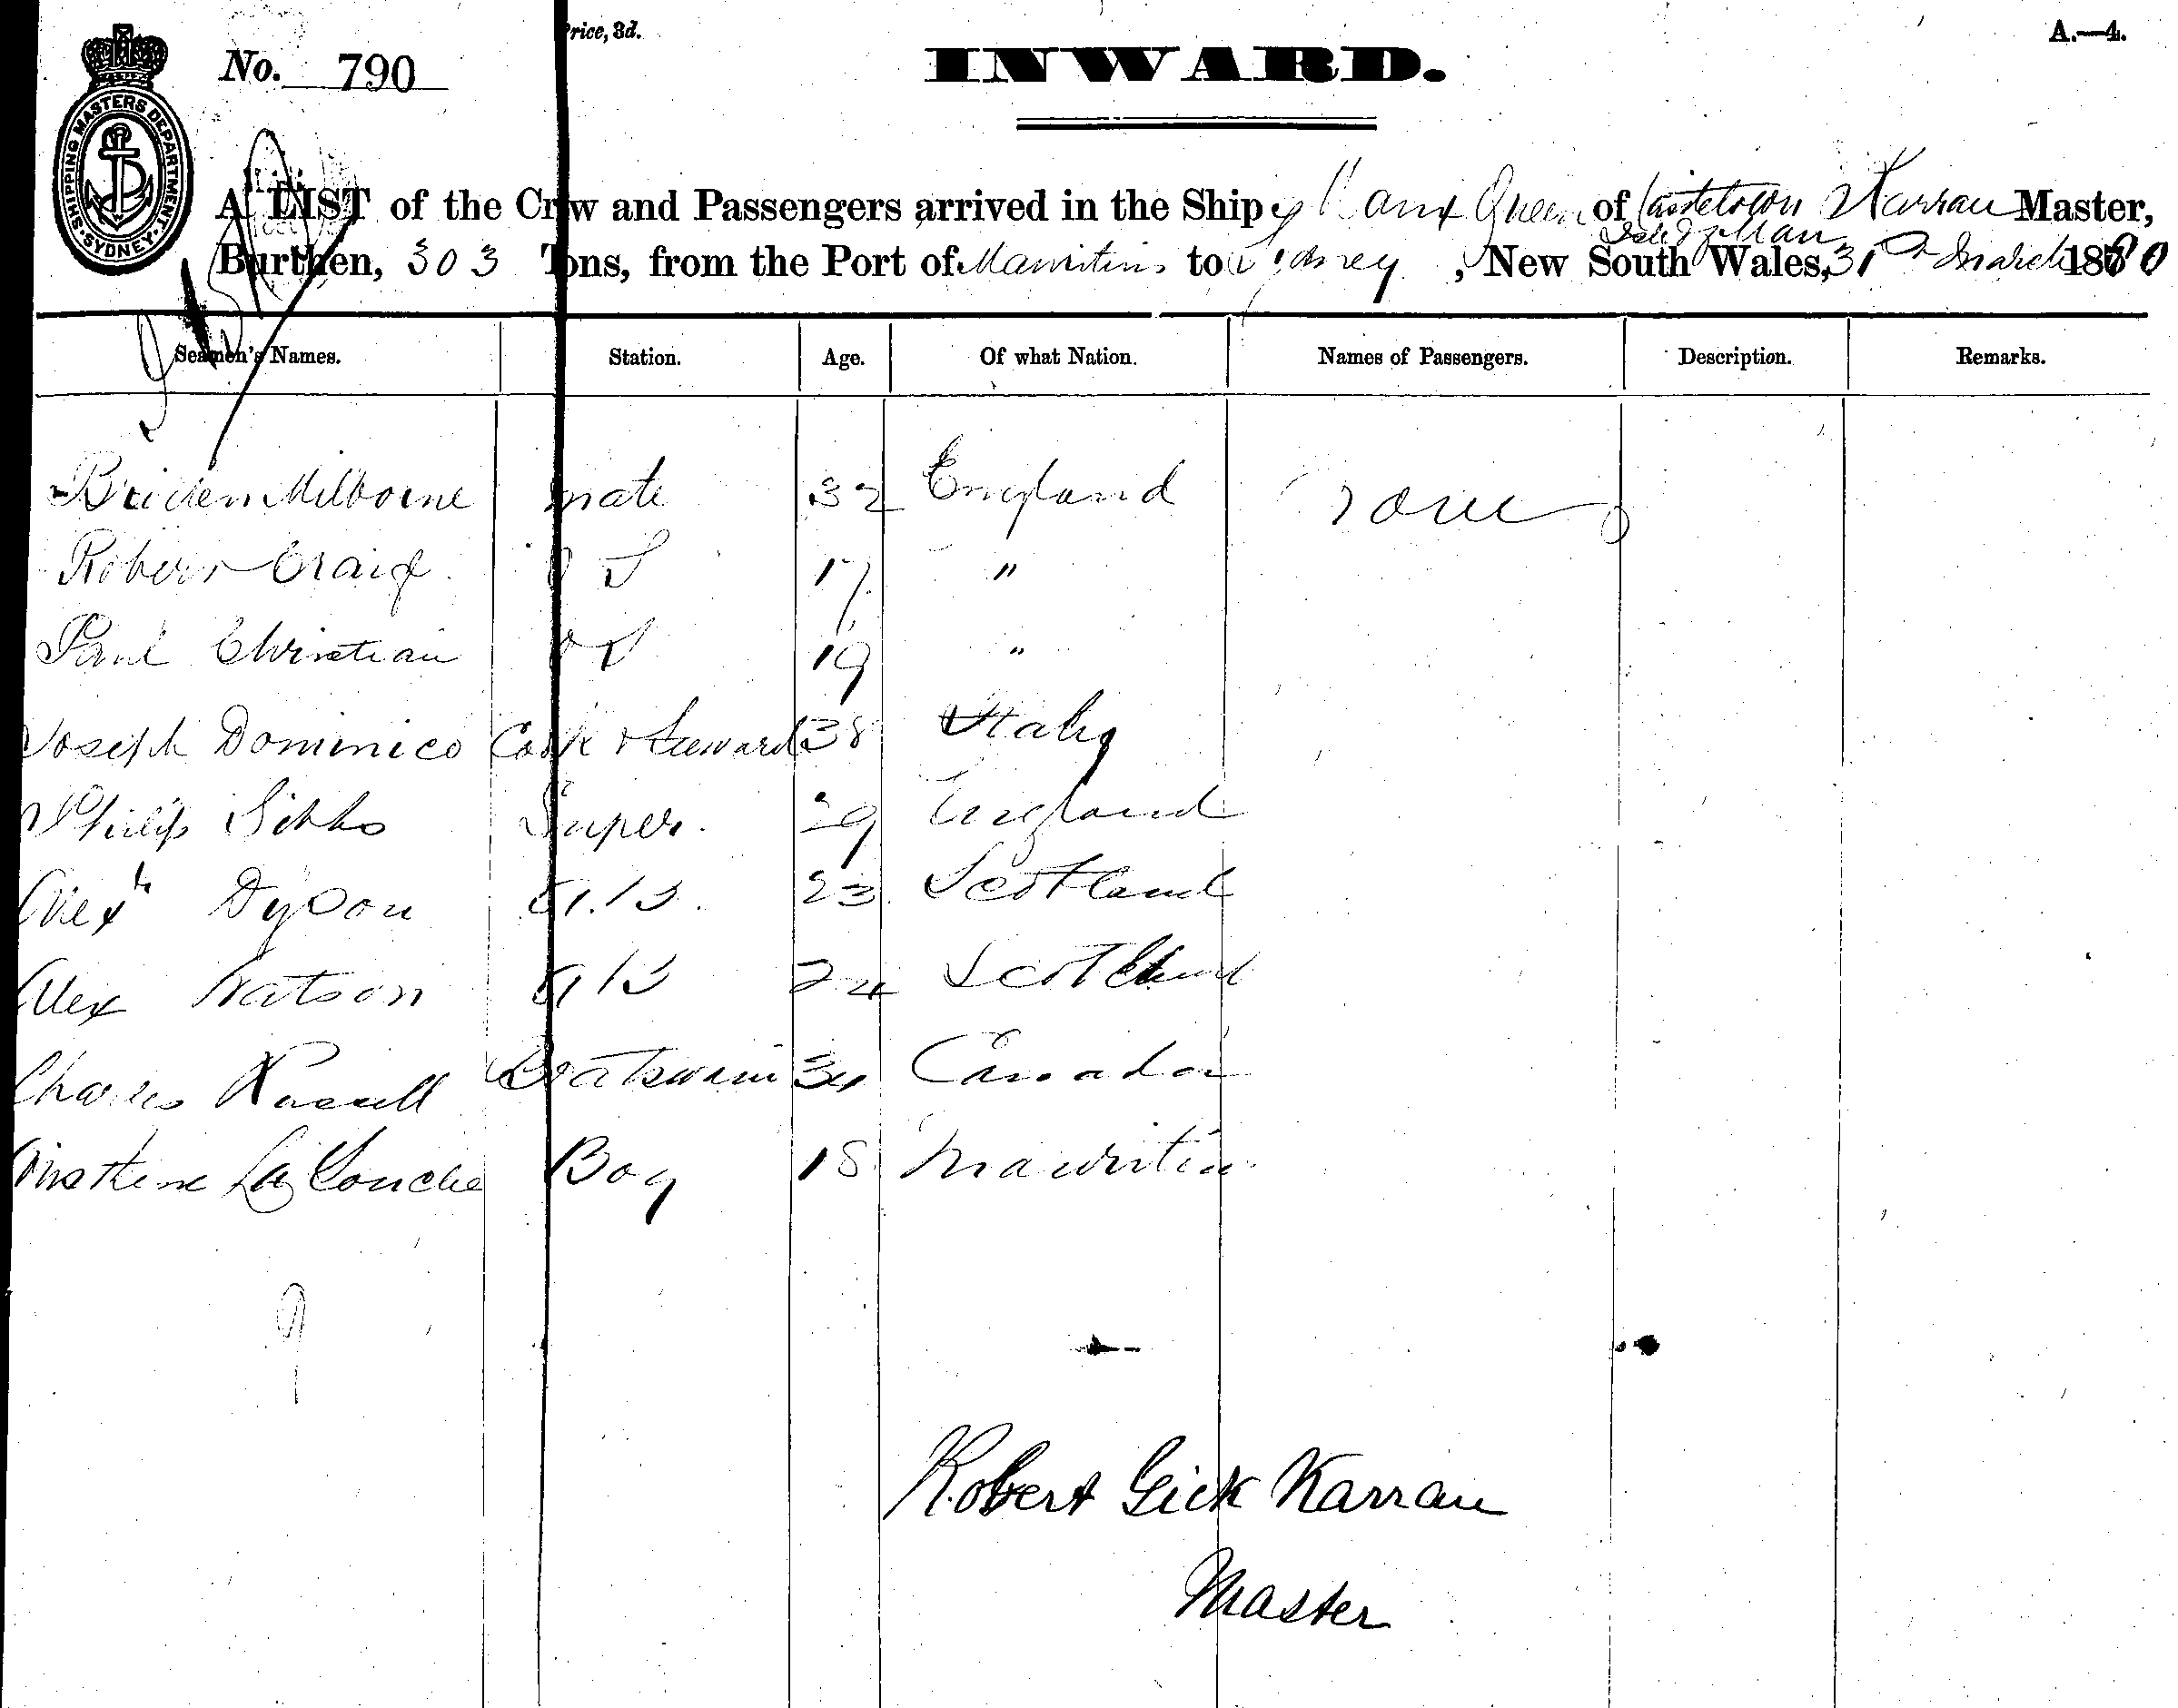 Price, 3d.
A.—4.
No. 790
INWARD.
SHIPPING MASTERS DEPARTMENT · SYDNEY ·
A LIST of the Crew and Passengers arrived in the Ship Manx Queen of Castletown Karran Master,
Isle of Man
Burthen, 303 Tons, from the Port of Mauritius to Sydney, New South Wales, 31st March 1880
Seamen's Names. Station. Age. Of what Nation. Names of Passengers. Description. Remarks.
Milborne mate 32 England None
Robert Craig O S 17 "
Paul Christian O S 19 "
Joseph Dominico Cook & Steward 38 Italy
Philip Super. 29 England
Alexr Dyson A.B. 23 Scotland
Alex Watson A B 24 Scotland
Charles Russell Boatswain 34 Canada
Boy 18 Mauritius
9
Robert Gick Karran
Master